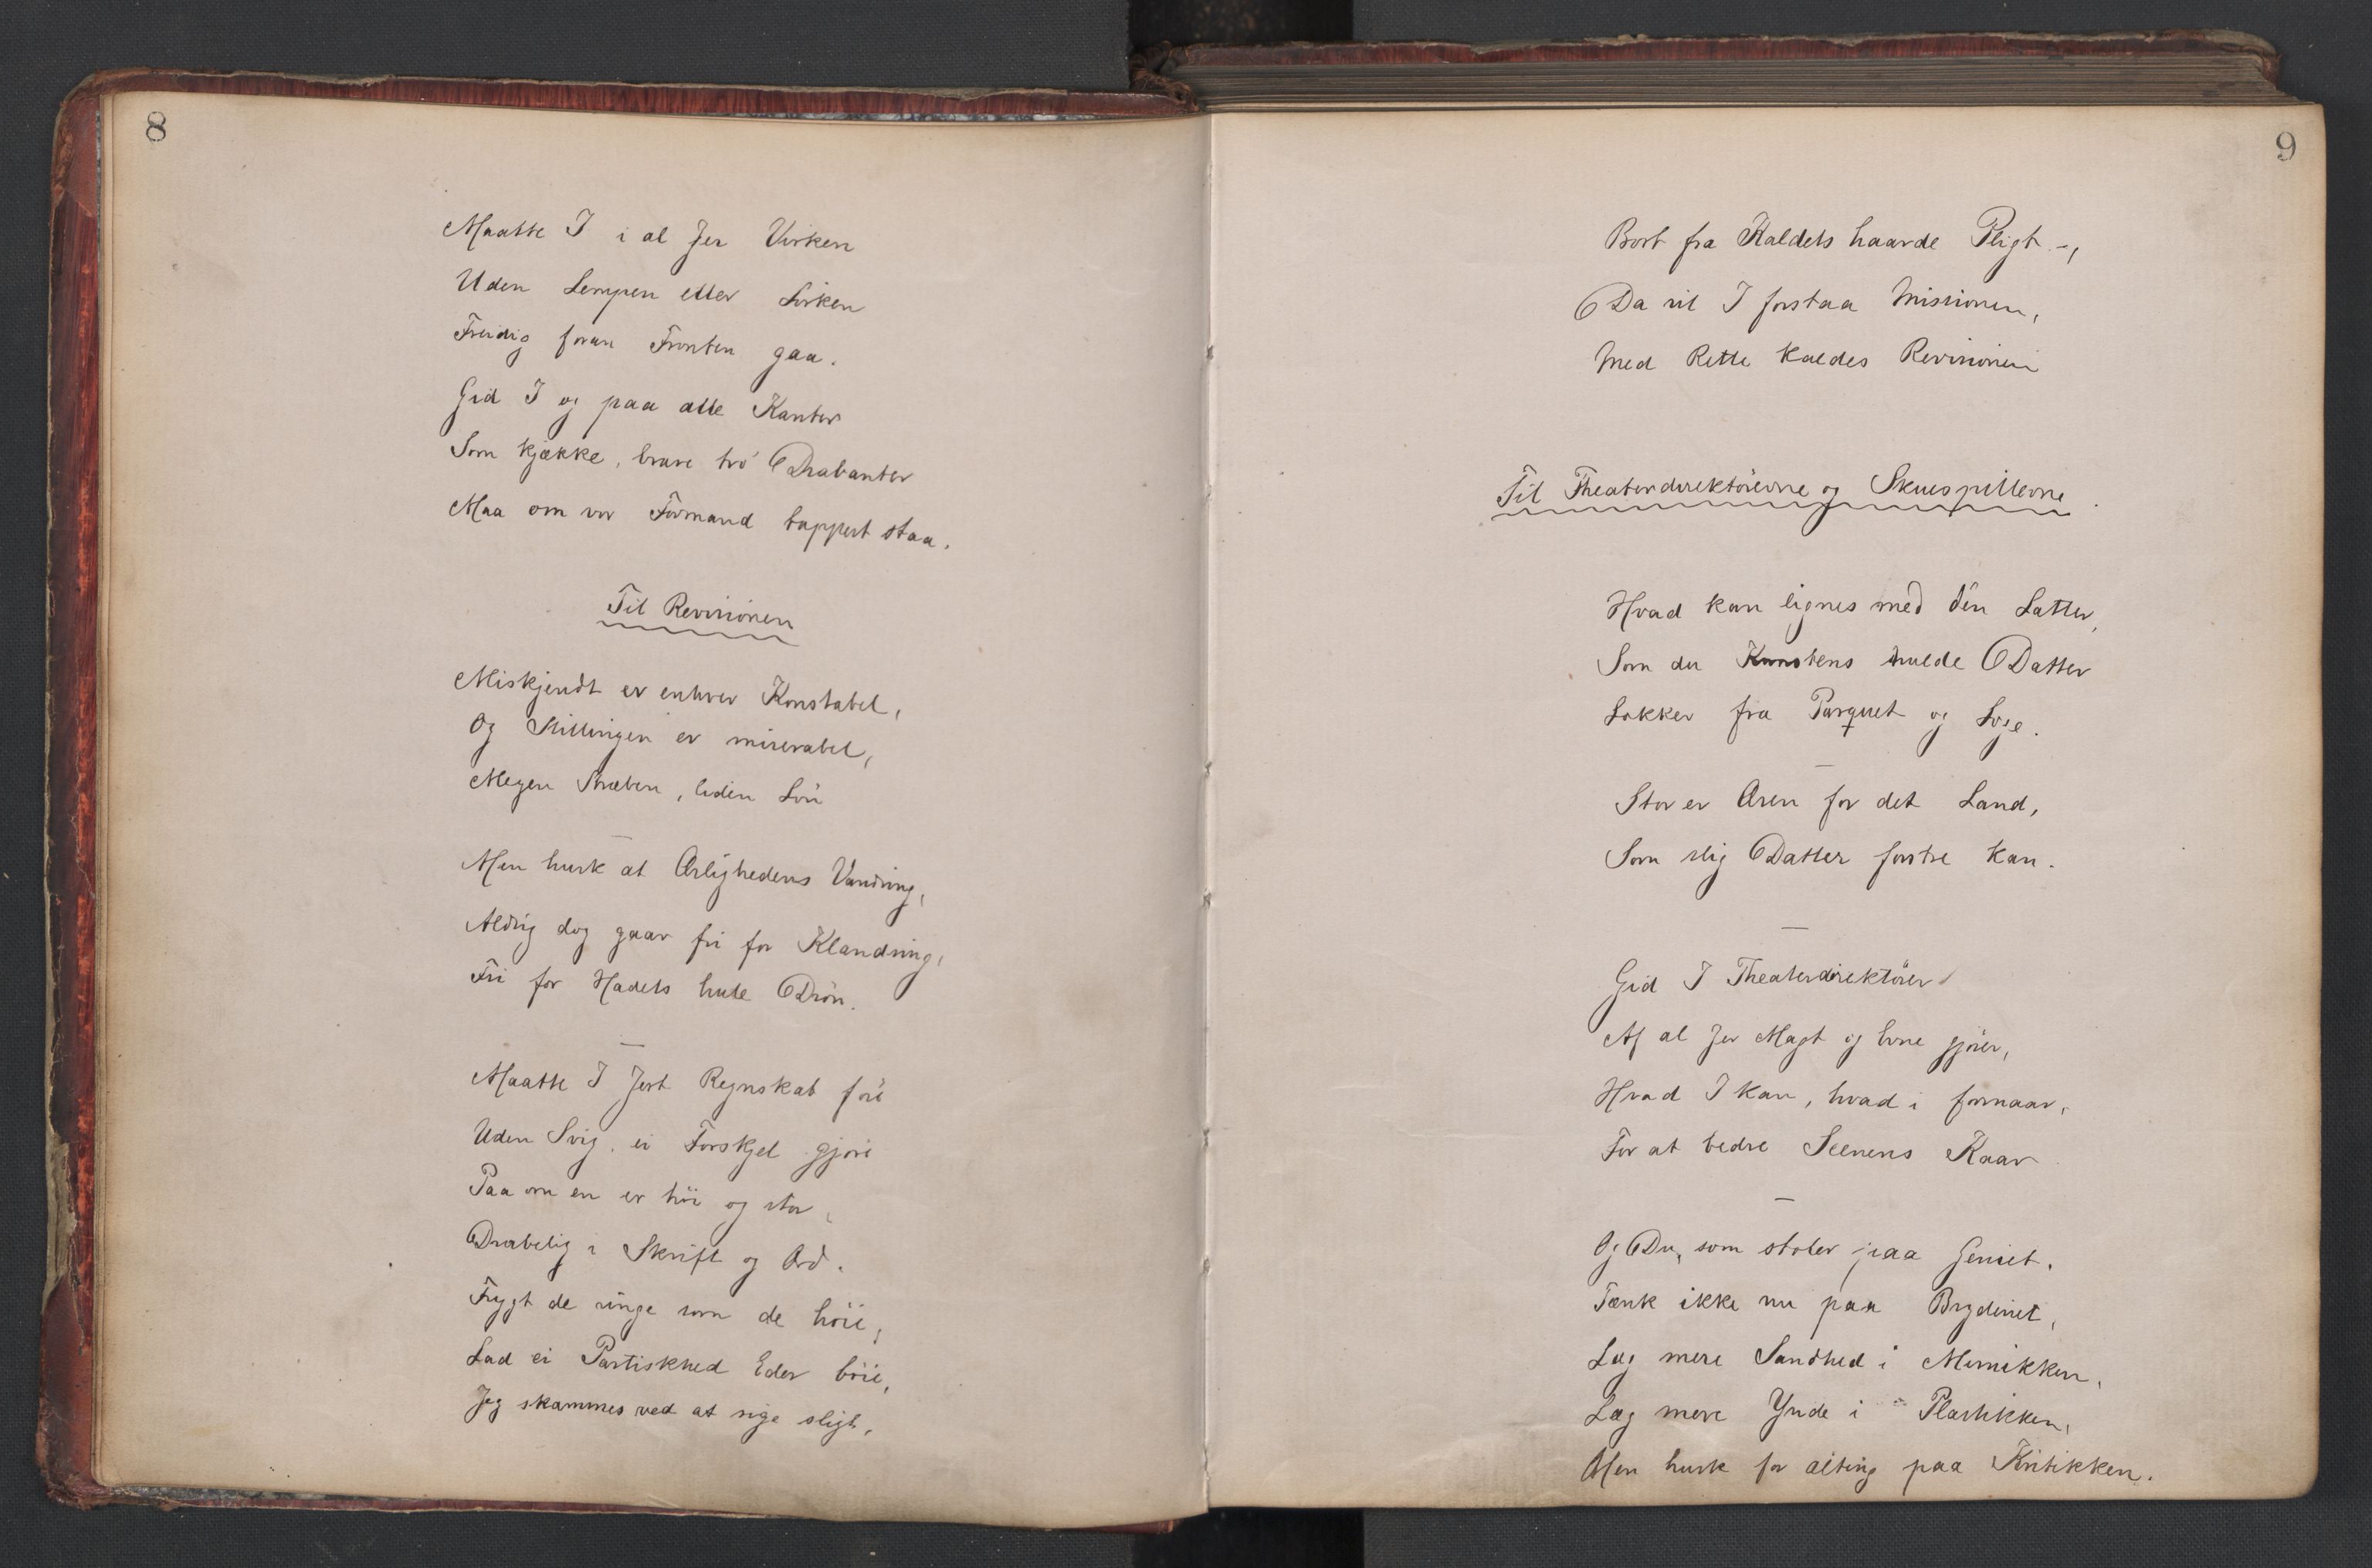 8
Maatte I i al Jer Virken
Uden Lempen eller Lirken
Freidig foran Fronten gaa.
Gid I og paa alle Kanter
Som kjække, brave tro Drabanter
Maa om vor Formand tappert staa.
Til Revisionen
Miskjendt er enhver Konstabel,
Og Stillingen er miserabel,
Megen Stræben, liden Lön
—
Men husk at Ærlighedens Vandring,
Aldrig dog gaar fri for Klandring,
Fri for Hadets hule Drön.
—
Maatte I Jert Regnskab före
Uden Svig, ei Forskjel gjöre
Paa om en er höi og stor,
Drabelig i Skrift og Ord.
Frygt de ringe som de höie,
Lad ei Partiskhed Eder böie,
Jeg skammes ved at sige sligt,
9
Bort fra Kaldets haarde Pligt -,
Da vil I forstaa Missionen,
Med Rette kaldes Revisionen
Til Theaterdirektörerne og Skuespillerne.
Hvad kan lignes med den Latter,
Som du Kunstens hulde Datter
Lokker fra Parquet og Loge.
—
Stor er Æren for det Land,
Som slig Datter fostre kan.
—
Gid I Theaterdirektörer
Af al Jer Magt og Evne gjörer,
Hvad I kan, hvad i formaar,
For at bedre Scenens Kaar
—
Og Du, som stoler paa Geniet.
Tænk ikke nu paa Bryderiet,
Læg mere Sandhed i Mimikken,
Læg mere Ynde i Plastikken,
Men husk for alting paa Kritikken.